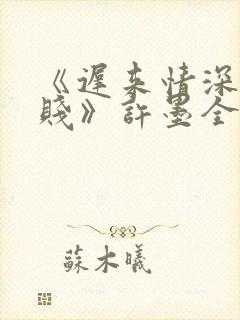 《遲來情深
賤》許墨全
蘇木曦